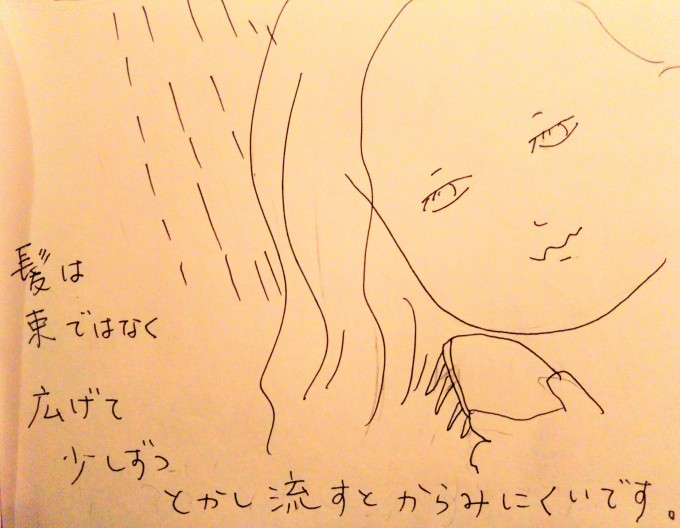 髪は
束ではなく
広げて
少しずつ
とかし流すとからみにくいです。